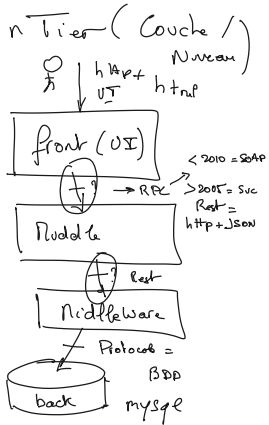 n Tier ( Couche /
Niveau )
http +
UI
html
front (UI)
?
→ RPC
< 2010 = SOAP
> 2005 = Svc
Rest =
http + JSON
Muddle
? Rest
Middleware
Protocole =
BDD
back
mysql